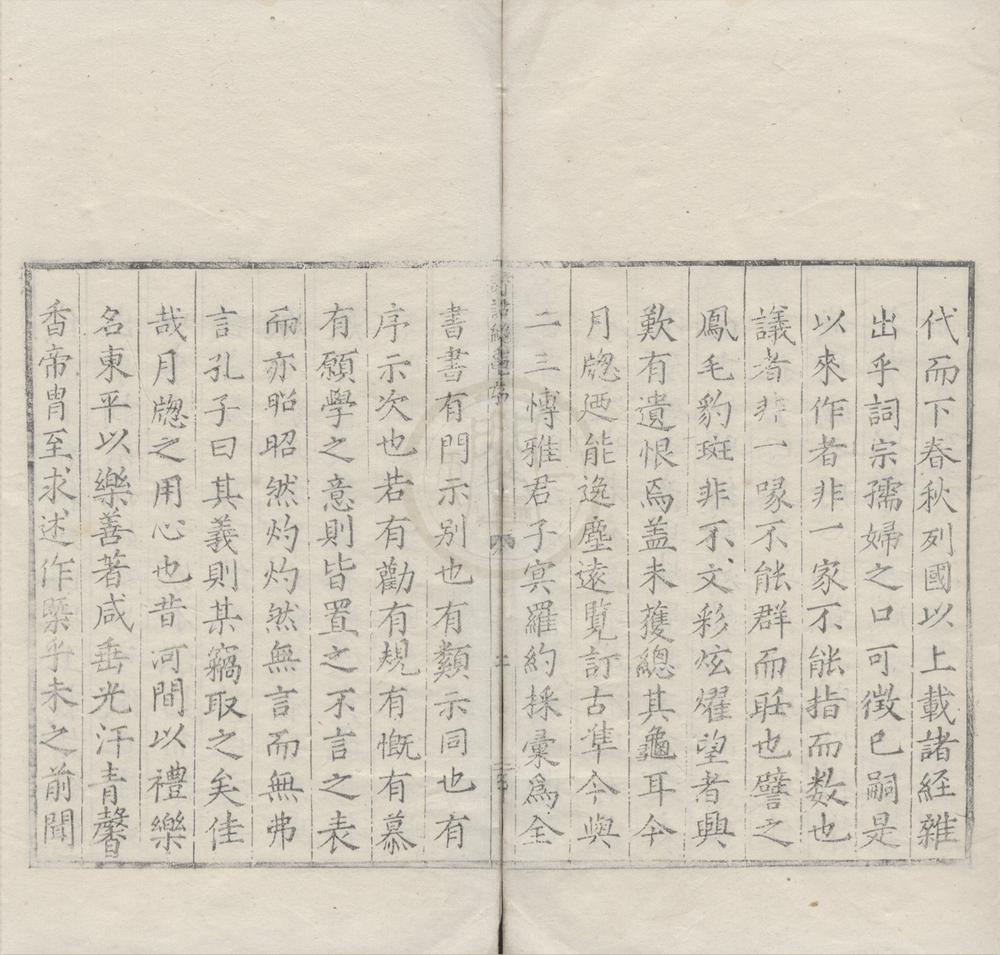 代而下春秋列國以上載諸經雜
出乎詞宗孺婦之口可徴已嗣是
以來作者非一家不能指而数也
議者非一喙不能群而耴也譬之
鳳毛豹斑非不文彩炫燿望者興
歎有遺恨焉盖未獲緫其龜耳今
月牕廼能逸塵遠覽訂古凖今與
二三愽雅君子㝠羅約採彚爲全
詩話總龜序
書書有門示别也有類示同也有
序示次也若有勸有規有慨有慕
有願學之意則皆置之不言之表
而亦昭昭然灼灼然無言而無弗
言孔子曰其義則某竊取之矣佳
哉月牕之用心也昔河間以禮樂
名東平以樂善著咸垂光汗青馨
香帝胄至求述作槩乎未之前聞